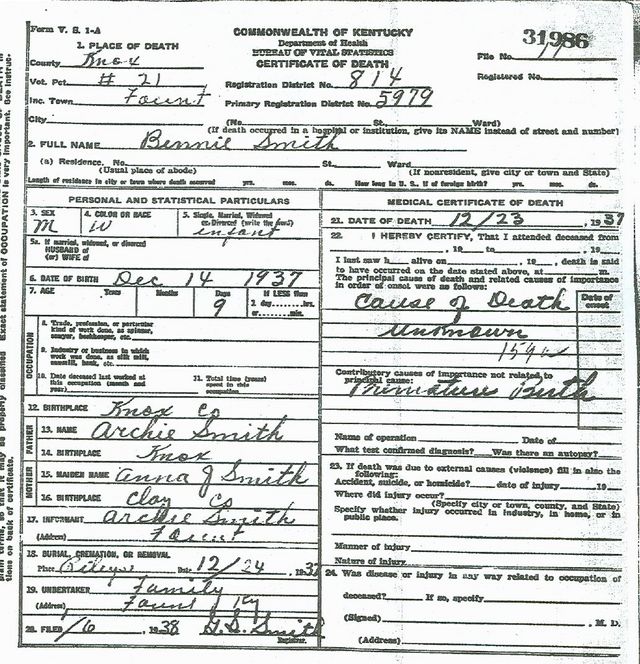 Form V. S. 1-A
COMMONWEALTH OF KENTUCKY
Department of Health
BUREAU OF VITAL STATISTICS
CERTIFICATE OF DEATH
31986
File No. 17
Registered No.
1. PLACE OF DEATH
County Knox
Vot. Pct # 21
Inc. Town Fount
City
Registration District No. 814
Primary Registration District No. 5979
(No. St., Ward)
(If death occurred in a hospital or institution, give its NAME instead of street and number)
2. FULL NAME Bennie Smith
(a) Residence. No. St., Ward
(Usual place of abode) (If nonresident, give city or town and State)
Length of residence in city or town where death occurred yrs. mos. ds. How long in U. S., if of foreign birth? yrs. mos. ds.
PERSONAL AND STATISTICAL PARTICULARS
3. SEX M
4. COLOR OR RACE W
5. Single, Married, Widowed or Divorced (write the word) infant
5a. If married, widowed, or divorced
HUSBAND of
(or) WIFE of
6. DATE OF BIRTH Dec 14 1937
7. AGE Years Months Days 9 If LESS than
1 day, hrs.
or min.
OCCUPATION
8. Trade, profession, or particular
kind of work done, as spinner,
sawyer, bookkeeper, etc.
9. Industry or business in which
work was done, as silk mill,
sawmill, bank, etc.
10. Date deceased last worked at
this occupation (month and
year)
11. Total time (years)
spent in this
occupation
12. BIRTHPLACE Knox Co
FATHER
13. NAME Archie Smith
14. BIRTHPLACE Knox
MOTHER
15. MAIDEN NAME Anna J Smith
16. BIRTHPLACE Clay Co
17. INFORMANT Archie Smith
(Address) Fount
18. BURIAL, CREMATION, OR REMOVAL
Place Date 12/24, 1937
19. UNDERTAKER Family
(Address) Fount Ky
20. FILED 1/6, 1938 G.S. Smith
Registrar.
MEDICAL CERTIFICATE OF DEATH
21. DATE OF DEATH 12/23, 1937
22. I HEREBY CERTIFY, That I attended deceased from
, 19 to , 19
I last saw h alive on , 19 , death is said
to have occurred on the date stated above, at m.
The principal cause of death and related causes of importance
in order of onset were as follows:
Date of
onset
Cause of Death
Unknown
159
Contributory causes of importance not related to
principal cause:
Premature Birth
Name of operation Date of
What test confirmed diagnosis? Was there an autopsy?
23. If death was due to external causes (violence) fill in also the
following:
Accident, suicide, or homicide? date of injury 19
Where did injury occur?
(Specify city or town, county, and State)
Specify whether injury occurred in industry, in home, or in
public place.
Manner of injury
Nature of injury
24. Was disease or injury in any way related to occupation of
deceased? If so, specify
(Signed) , M. D.
(Address)